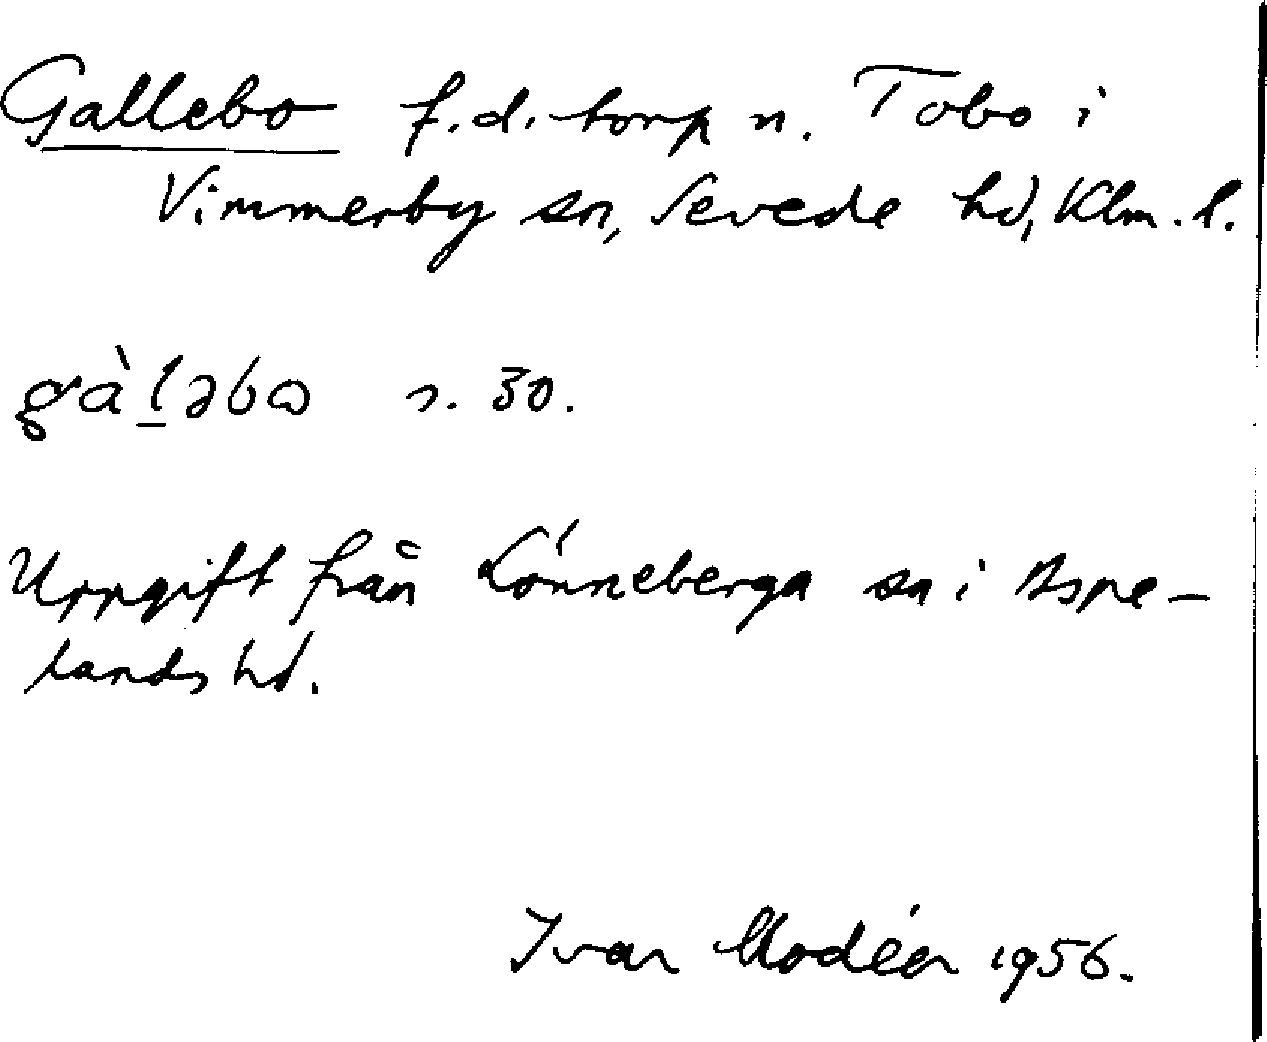 Gallebo f.d. torp n. Tobo i
Vimmerby sn, Sevede hd, Klm. l.
gàl̲əbɷ s. 30.
Uppgift från Lönneberga sn i Aspe-
lands hd.
Ivar Modéer 1956.